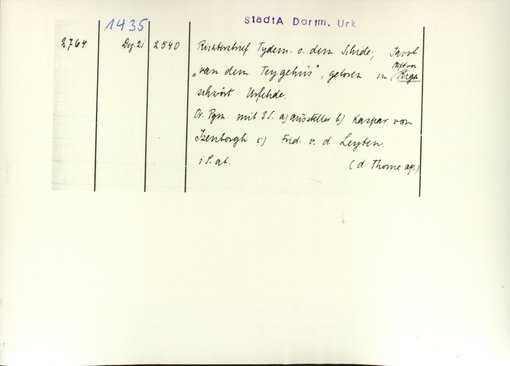 1435
StadtA Dortm. Urk
2764 Dez 21 2540 Richterbrief Tydem. v. dem Schide, Jacob
"van dem Teygehus", geboren in Riga
schwört Urfehde.
Or. Pgm. mit 2 S. a) Aussteller b) Kaspar von
Isenborgh c) Fred v. d Leyten.
1 S. ab. (d. Thome ap.)